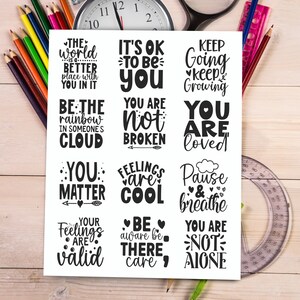 THE
world
IS A
BETTER
place with
YOU IN IT
IT'S OK
TO BE
YOU
KEEP
Going
keep
Growing
BE THE
rainbow
IN SOMEONE'S
CLOUD
YOU ARE
Not
BROKEN
YOU
ARE
loved
YOU
MATTER
FEELINGS
are
COOL
Pause
&
breathe
YOUR
Feelings
ARE
valid
BE
aware be
THERE
care
YOU ARE
NOT
ALONE